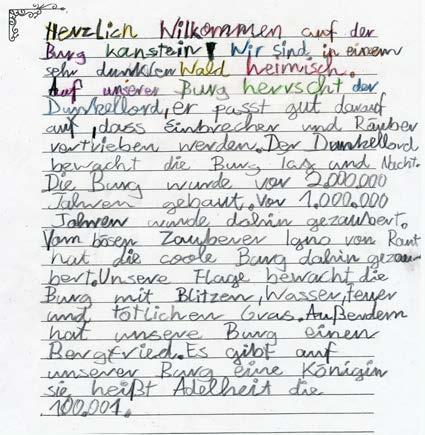 Herzlich Wilkommen auf der
Burg hanstein! Wir sind in einem
sehr dunklen Wald heimisch.
Auf unserer Burg herrscht der
Dunkellord, er passt gut darauf
auf, dass Einbrecher und Räuber
vertrieben werden. Der Dunkellord
bewacht die Burg Tag und Nacht.
Die Burg wurde vor 2.000.000
Jahren gebaut. Vor 1.000.000
Jahren wurde dahin gezaubert.
Vom bösen Zauberer Igno von Raut
hat die coole Burg dahin gezau
bert. Unsere Flage bewacht die
Burg mit Blitzen, Wasser, feuer
und tötlichen Gras. Außendem
hat unsere Burg einen
Bergfried. Es gibt auf
unserer Burg eine Königin
sie heißt Adelheit die
100.001.